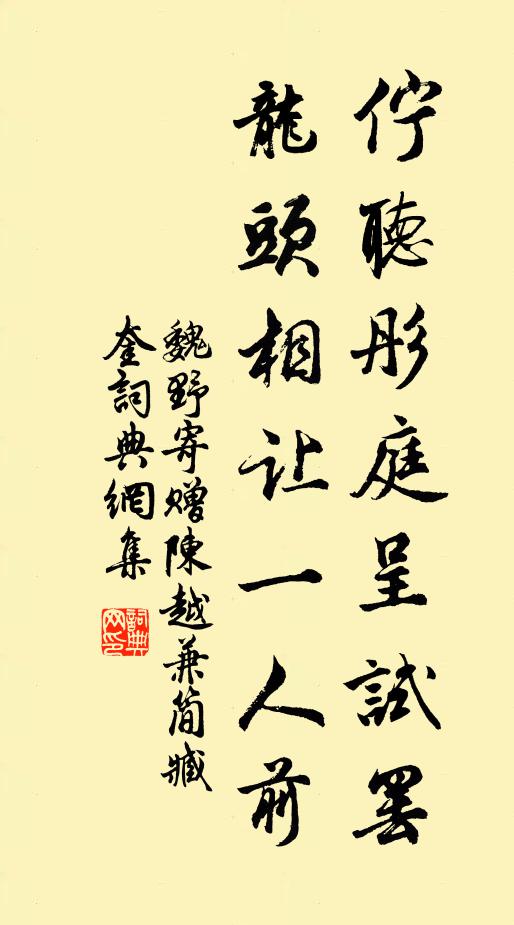 佇聽彤庭呈試罷
龍頭相让一人前
魏野寄赠陳越兼简臧
奎詞典網集
詞典网印